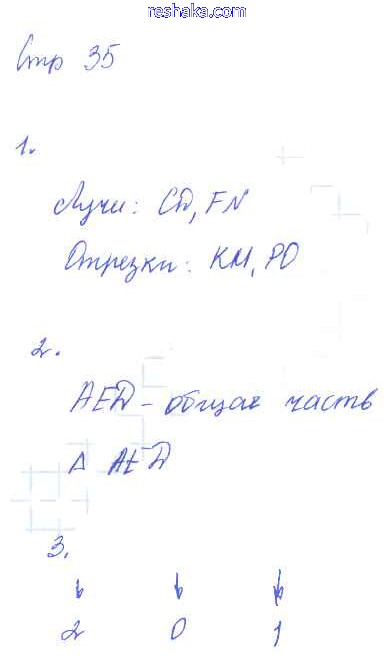 reshaka.com
Стр 35
1.
Лучи: CD, FN
Отрезки: KM, PO
2.
AED - общая часть
Δ AED
3.
↓ ↓ ↓
2 0 1